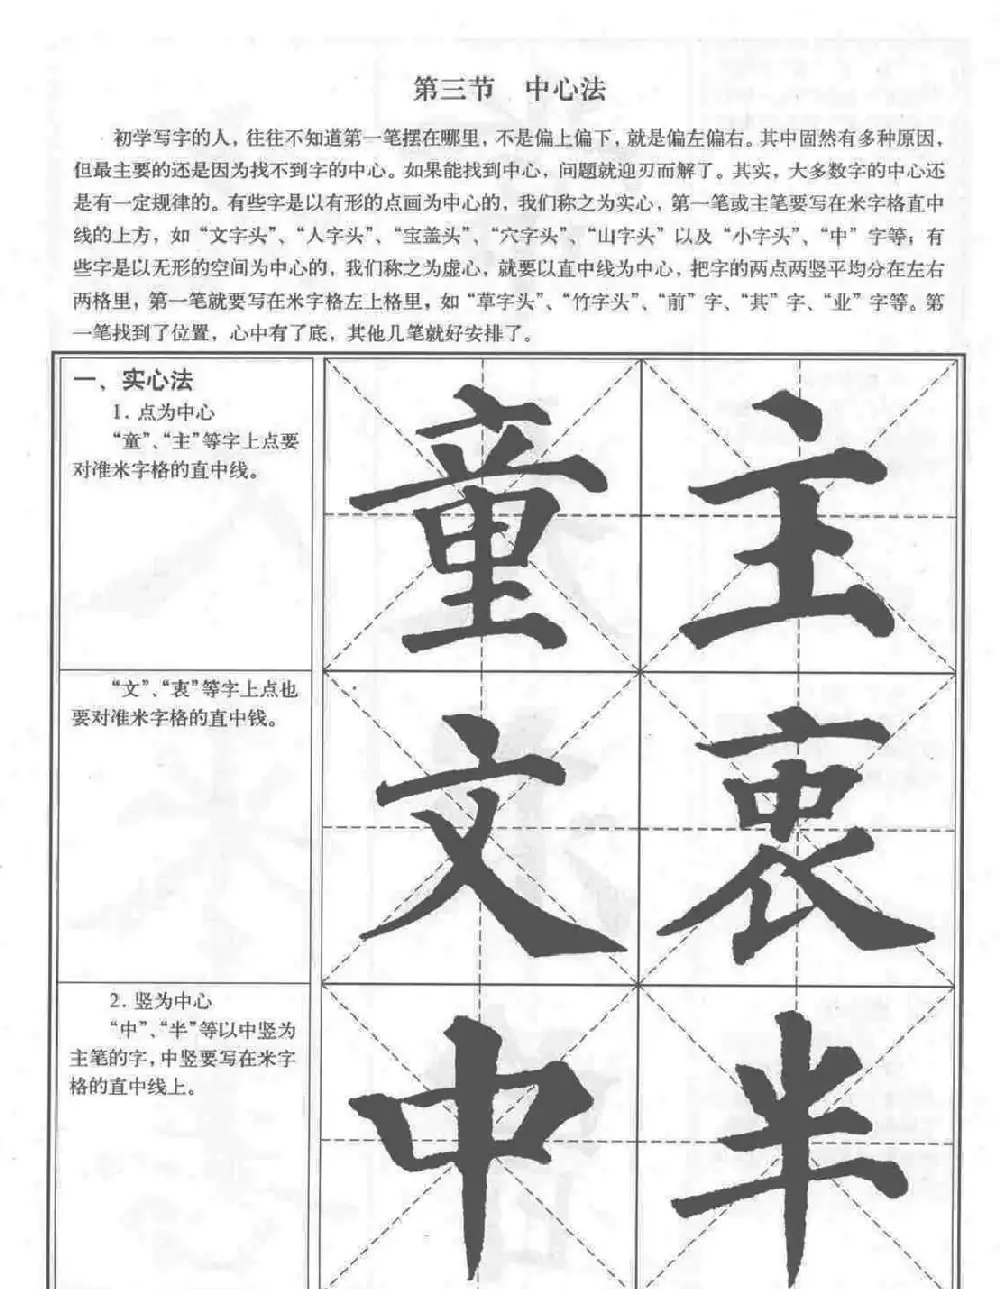 第三节 中心法
初学写字的人，往往不知道第一笔摆在哪里，不是偏上偏下，就是偏左偏右。其中固然有多种原因，
但最主要的还是因为找不到字的中心。如果能找到中心，问题就迎刃而解了。其实，大多数字的中心还
是有一定规律的。有些字是以有形的点画为中心的，我们称之为实心，第一笔或主笔要写在米字格直中
线的上方，如“文字头”、“人字头”、“宝盖头”、“穴字头”、“山字头”以及“小字头”、“中”字等；有
些字是以无形的空间为中心的，我们称之为虚心，就要以直中线为中心，把字的两点两竖平均分在左右
两格里，第一笔就要写在米字格左上格里，如“草字头”、“竹字头”、“前”字、“其”字、“业”字等。第
一笔找到了位置，心中有了底，其他几笔就好安排了。
一、实心法
1. 点为中心
“童”、“主”等字上点要
对准米字格的直中线。
童 主
“文”、“衷”等字上点也
要对准米字格的直中钱。
文 衷
2. 竖为中心
“中”、“半”等以中竖为
主笔的字，中竖要写在米字
格的直中线上。
中 半